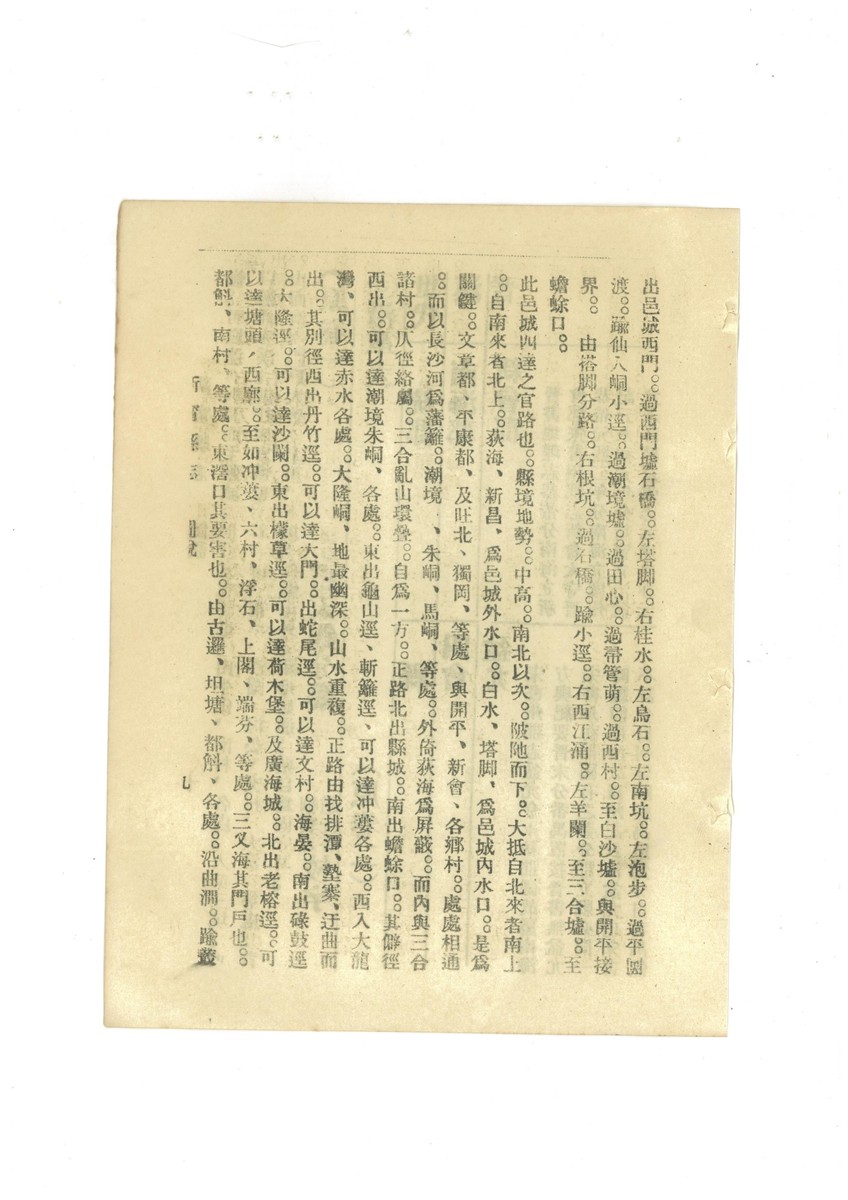 出邑城西門。。過西門墟石橋。。左塔脚。。右桂水。。左烏石。。左南坑。。左泡步。。過平圆
渡。。踰仙人峒小逕。。過潮境墟。。過田心。。過帶管萌。。過西村。。至白沙墟。。與開平接
界。。　由塔脚分路。。右根坑。。過石橋。。踰小逕。。右西江涌。。左羊闌。。至三合墟。。至
蟾蜍口。。
此邑城四達之官路也。。縣境地勢。。中高。。南北以次。。陂陁而下。。大抵自北來者南上
。。自南來者北上。。荻海、新昌、爲邑城外水口。。白水、塔脚、爲邑城內水口。。是爲
關鍵。。文章都、平康都、及旺北、獨岡、等處、與開平、新會、各鄉村。。處處相通
。。而以長沙河爲藩籬。。潮境、朱峒、馬峒、等處。。外倚荻海爲屏蔽。。而內與三合
諸村。。仄徑絡屬。。三合亂山環疊。。自爲一方。。正路北出縣城。。南出蟾蜍口。。其僻徑
西出。。可以達潮境朱峒、各處。。東出龜山逕、斬籬逕、可以達冲蔞各處。。西入大龍
灣、可以達赤水各處。。大隆峒、地最幽深。。山水重複。。正路由找排潭、塾寨、迂曲而
出。。其別徑西出丹竹逕。。可以達大門。。出蛇尾逕。。可以達文村。。海晏。。南出碌鼓逕
。。大隆逕。。可以達沙闌。。東出檬草逕。。可以達荷木堡。。及廣海城。。北出老榕逕。。可
以達塘頭、西廓。。至如冲蔞、六村、浮石、上閣、端芬、等處。。三叉海其門戶也。。
都斛、南村、等處。。東滘口其要害也。。由古邏、坦塘、都斛、各處。。沿曲澗。。踰叢
九